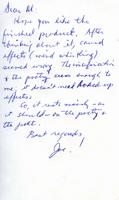 Dear Al:
Hope you like the
finished product. After
thinking about it, sound
effects (wind whistling)
seemed wrong. The information
& the poetry seem enough to
me; it doesn't need hoked up
effects.
So, it rests mainly as
it should on the poetry &
the poet.
Best regards,
Joe!